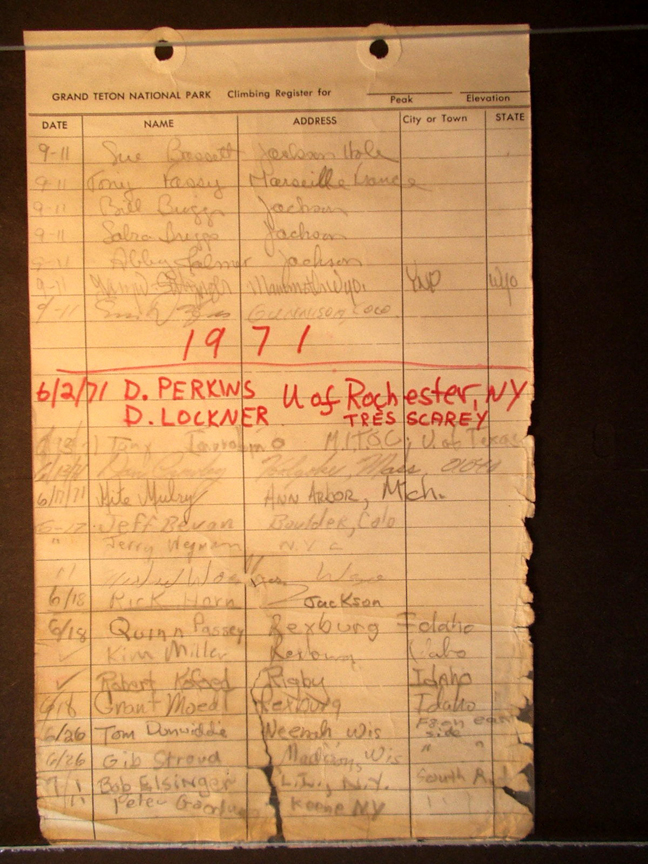 GRAND TETON NATIONAL PARK Climbing Register for
Peak Elevation
DATE NAME ADDRESS City or Town STATE
9-11 Sue Bassett Jackson Hole
9-11 Tony Marseille France
9-11 Bill Briggs Jackson
9-11 Sabra Briggs Jackson
9-11 Abby Jackson
9-11 Wyo. YNP Wyo
9-11 Gunnison, Colo.
1971
6/2/71 D. PERKINS U of Rochester, NY
D. LOCKNER TRÈS SCAREY
Tony M.I.T.O.C., U of Texas
6/12/71 Mass,
6/17/71 Mite Mulry ANN ARBOR, Mich.
6-17 Jeff Bevan Boulder, Colo
" Jerry N.Y.C
"
6/18 Rick Horn Jackson
6/18 Quinn Passey Rexburg Idaho
✓ Kim Miller Rexburg Idaho
✓ Robert Rigby Idaho
6/18 Grant Moedl Rexburg Idaho
6/26 Tom Dunwiddie Neenah Wis From east side
6/26 Gib Stroud Madison, Wis " "
7/1 Bob Elsinger L.I., N.Y. South
" Peter Keene NY